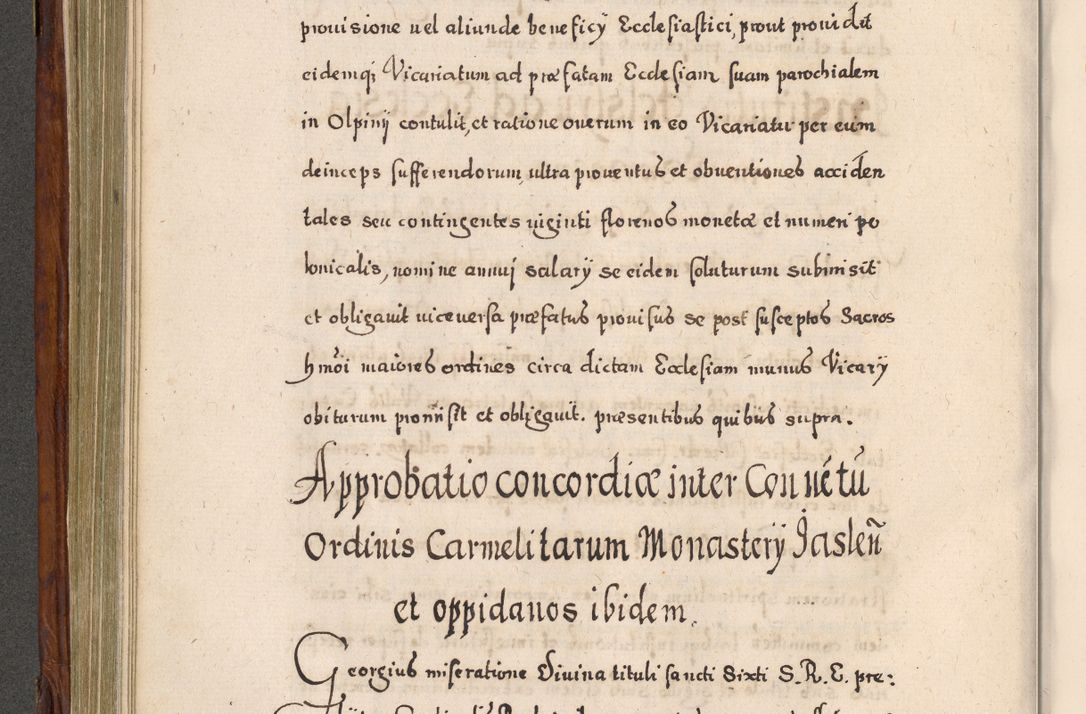 prouisione uel aliunde beneficÿ Ecclesiastici, prout prouidit
eidemq; Vicariatum ad præfatam Ecclesiam suam parochialem
in Olpinÿ contulit, et ratione onerum in eo Vicariatu per eum
deinceps sufferendorum, ultra prouentus et obuentiones acciden
tales seu contingentes uiginti florenos monetæ et numeri po
lonicalis, nomine annui salarÿ se eidem soluturum submisit
et obligauit uiceuersa præfatus prouisus se post susceptos Sacros
hmõi maiores ordines circa dictam Ecclesiam munus Vicarÿ
obiturum promisit et obligauit. præsentibus quibus supra.
Approbatio concordiæ inter Conuẽtũ
Ordinis Carmelitarum Monasterÿ Jasleñ
et oppidanos ibidem.
Georgius miseratione Diuina tituli sancti Sixti S. R. E. pre: